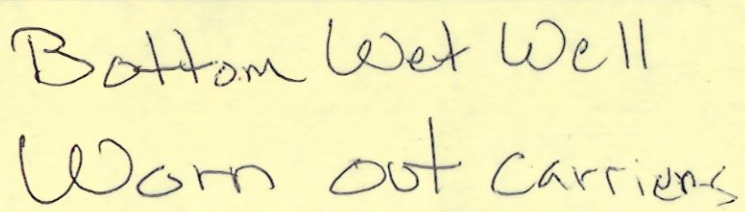 Bottom Wet Well
Worn out carriers